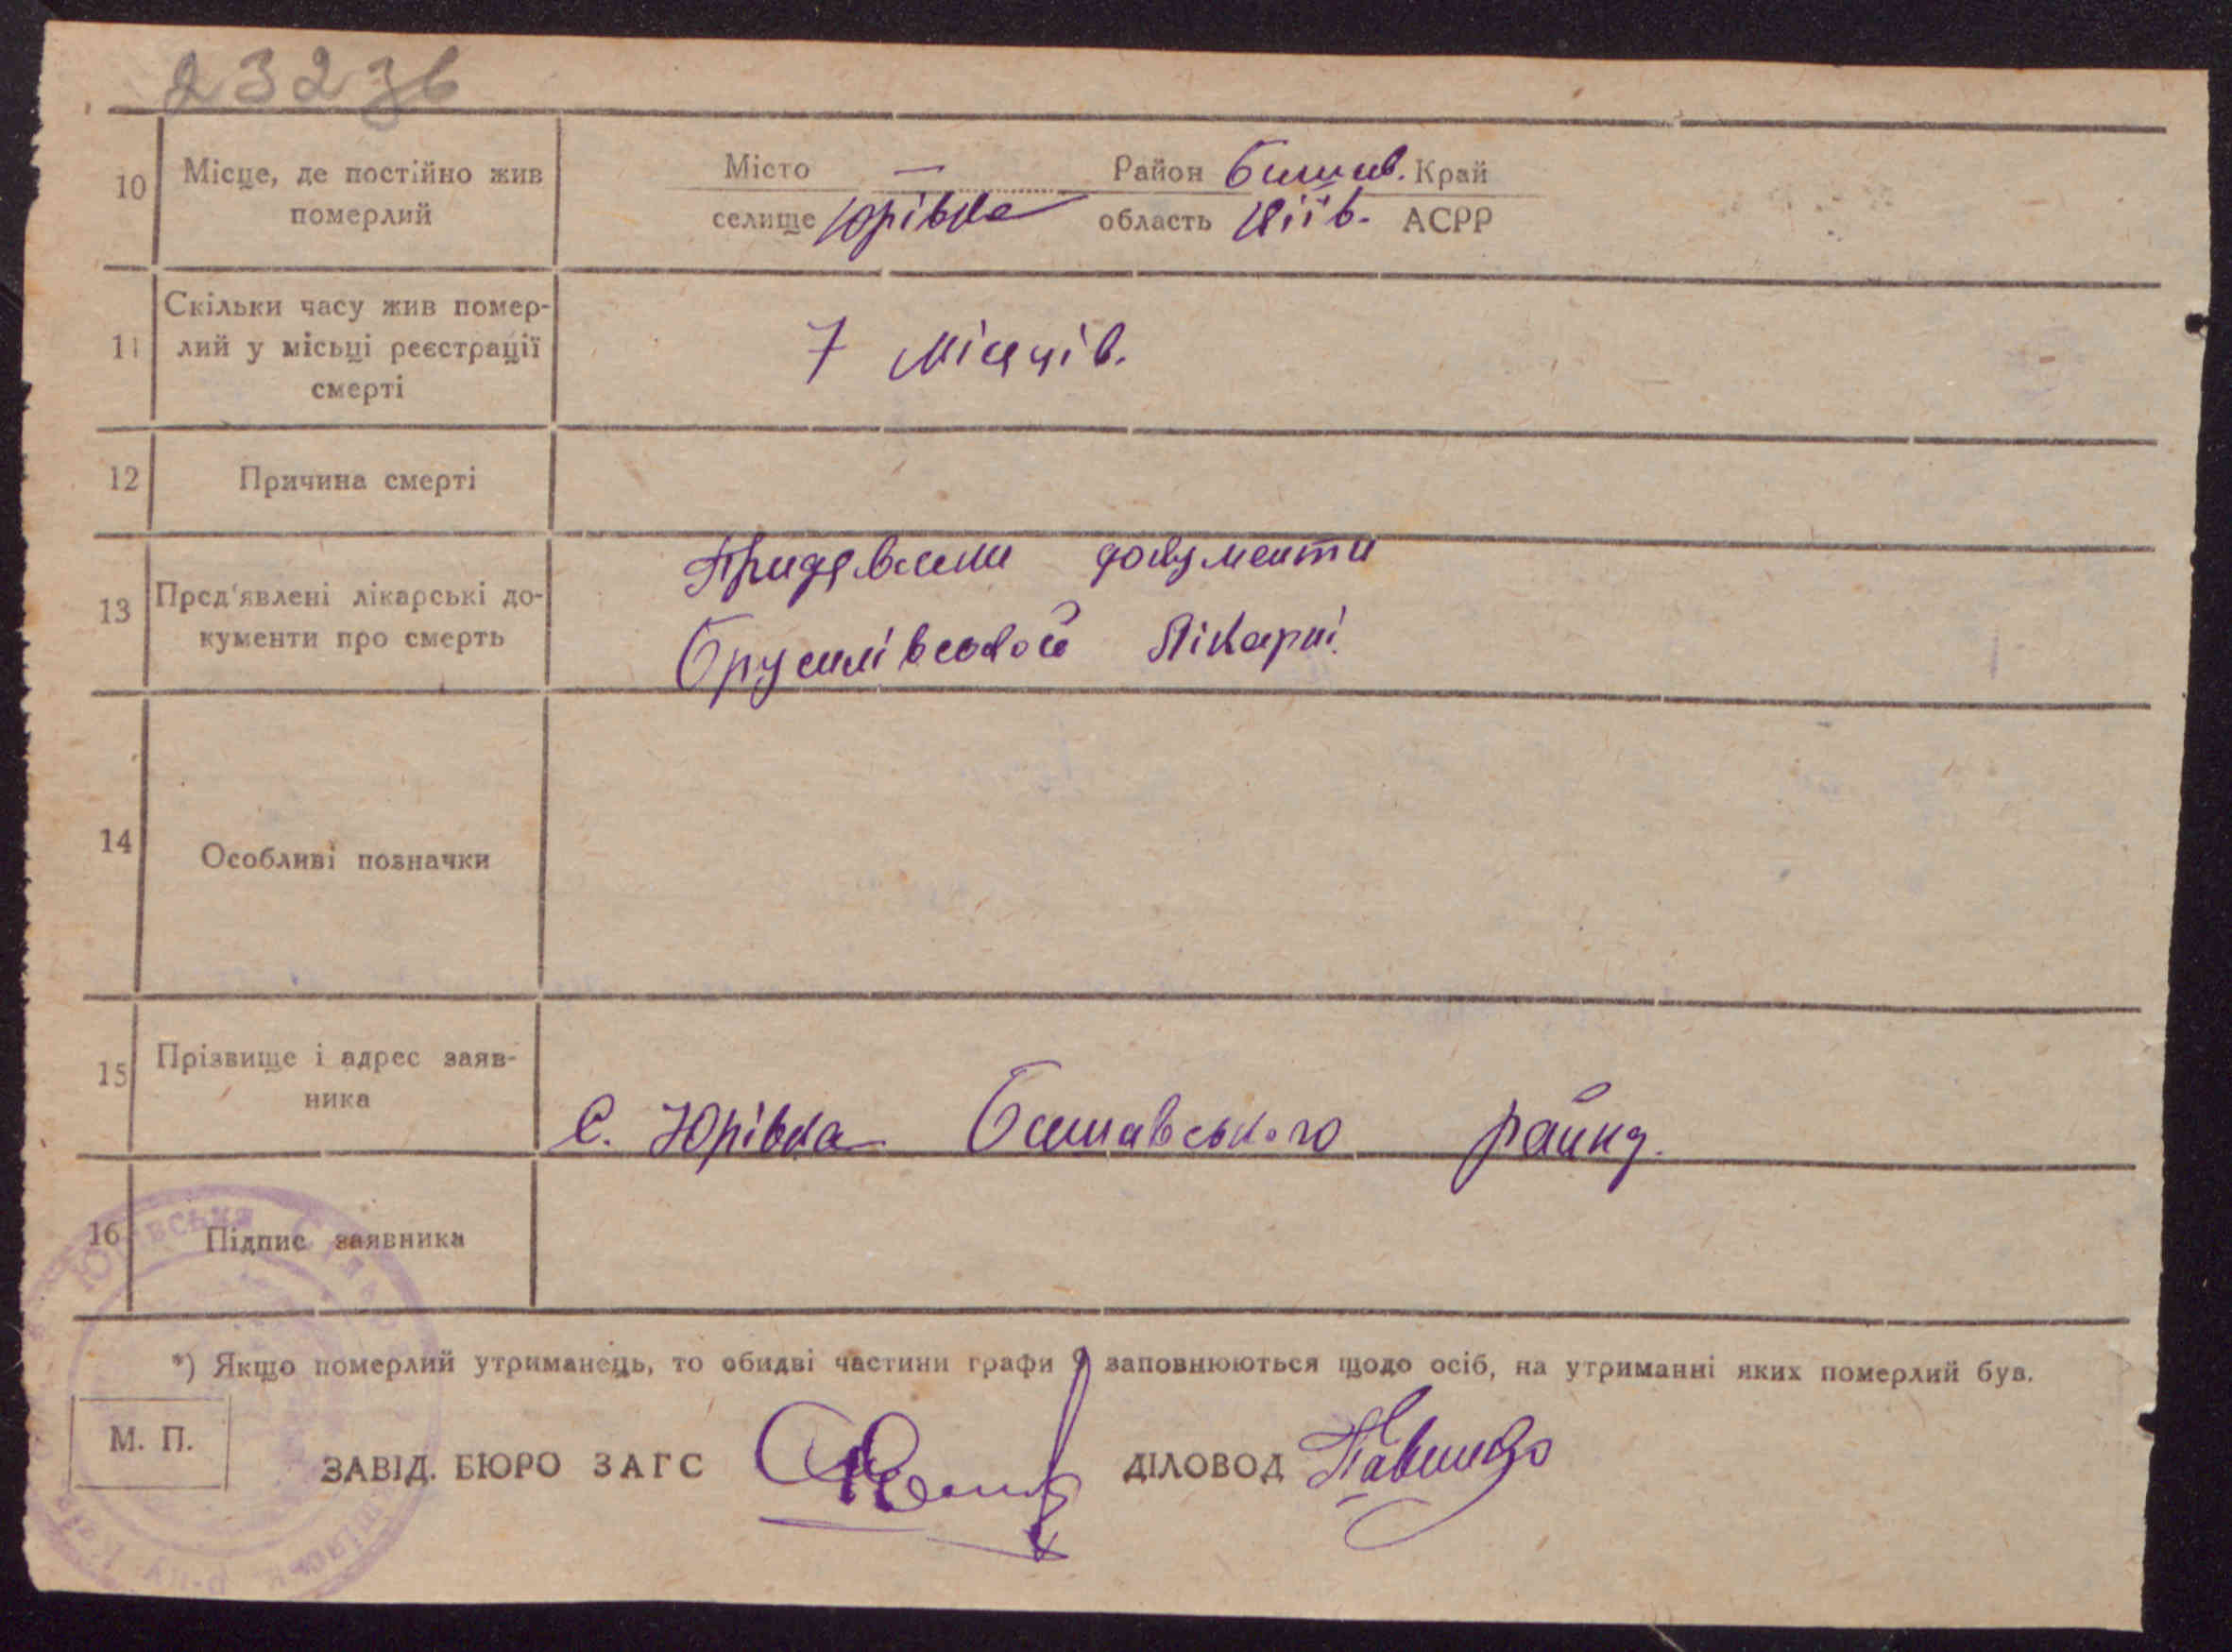 23236
10 Місце, де постійно жив померлий
Місто — Район Бишів. Край
селище Юрівка область Київ. АСРР
11 Скільки часу жив помер-
лий у місьці реєстрації
смерті
7 місяців.
12 Причина смерті
13 Пред'явлені лікарські до-
кументи про смерть
документи
Брусилівської Лікарні.
14 Особливі позначки
15 Прізвище і адрес заяв-
ника
С. Юрівка Бишавського району.
16 Підпис заявника
*) Якщо померлий утриманець, то обидві частини графи 9 заповнюються щодо осіб, на утриманні яких померлий був.
М. П.
ЗАВІД. БЮРО ЗАГС
ДІЛОВОД